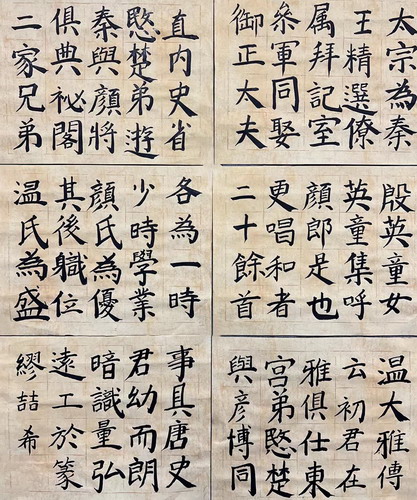 太宗為秦
王精選僚
属拜記室
叅軍同娶
御正太夫
殷英童女
英童集呼
顔郎是也
更唱和者
二十餘首
温大雅傳
云初君在
雅俱仕東
宫弟愍楚
與彦博同
直内史省
愍楚弟遊
秦與顔將
俱典祕閣
二家兄弟
各為一時
少時學業
顔氏為優
其後職位
温氏為盛
事具唐史
君幼而朗
暗識量弘
遠工於篆
繆喆希